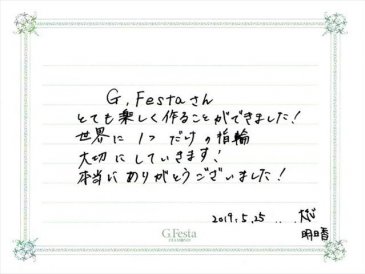 G,Festaさん
とても楽しく作ることができました!
世界に1つだけの指輪
大切にしていきます!
本当にありがとうございました!
2019.5.25
明日香
G.Festa